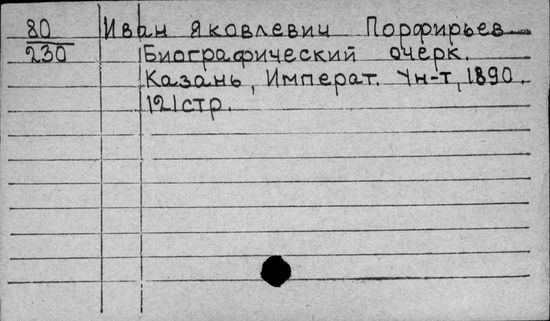 80 Иван Яковлевич Порфирьев.
230 Биографический очерк.
Казань, Императ. Ун-т, 1890.
121стр.